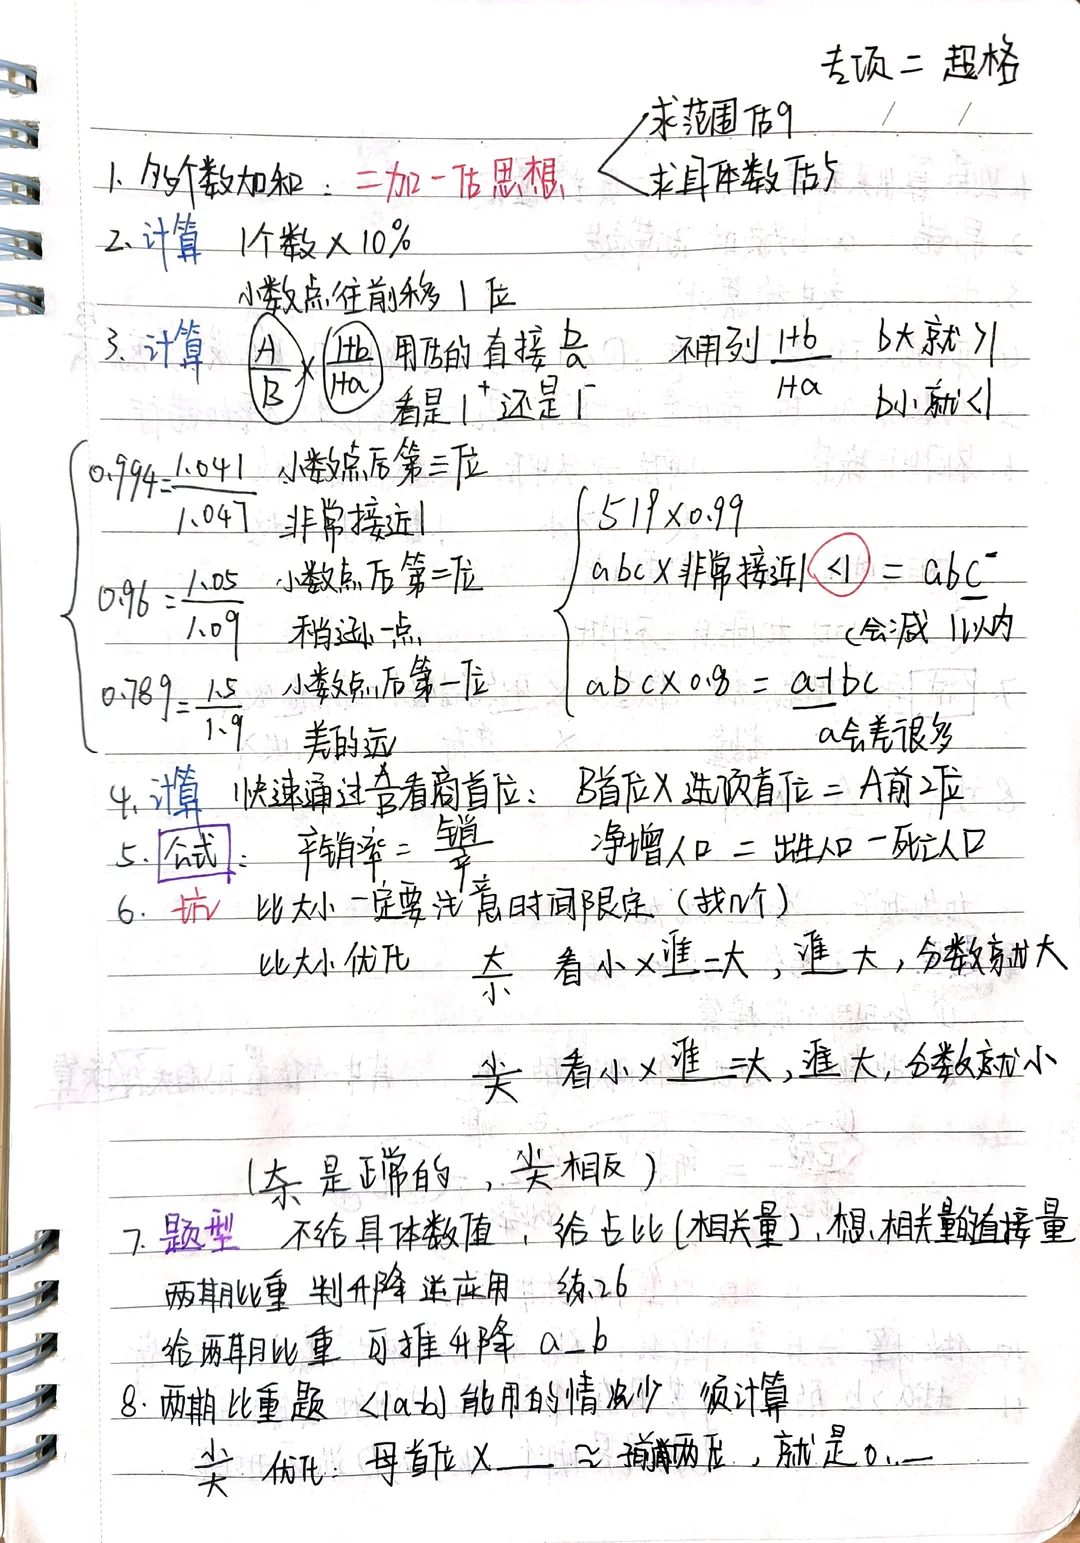 专项二 超格
1. 多个数加和：二加一估思想 求范围估9
求具体数估5
2. 计算 1个数×10%
小数点往前移1位
3. 计算 A/B × 1+b/1+a 用估的直接 b/a 不用列 1+b/1+a b大就>1
看是1⁺还是1⁻ b小就<1
0.994=1.041/1.047 小数点后第三位
非常接近1
0.96=1.05/1.09 小数点后第二位
稍远一点
0.789=1.5/1.9 小数点后第一位
差的远
519×0.99
abc×非常接近1 <1 = abc⁻
c会减1以内
abc×0.8 = a-1bc
a会差很多
4. 计算 快速通过A/B看商首位：B首位×选项首位=A前2位
5. 公式：产销率=销/产 净增人口=出生人口-死亡人口
6. 坑 比大小一定要注意时间限定（找几个）
比大小优化 大/小 看小×谁=大，谁大，分数就大
小/大 看小×谁=大，谁大，分数就小
（大/小是正常的，小/大相反）
7. 题型 不给具体数值，给占比（相关量），想相关量的直接量
两期比重 判升降 逆应用 练26
给两期比重 可推升降 a_b
8. 两期比重题 <|a-b|能用的情况少 须计算
小/大 优化：母首位×__≈子前两位，就是0.__